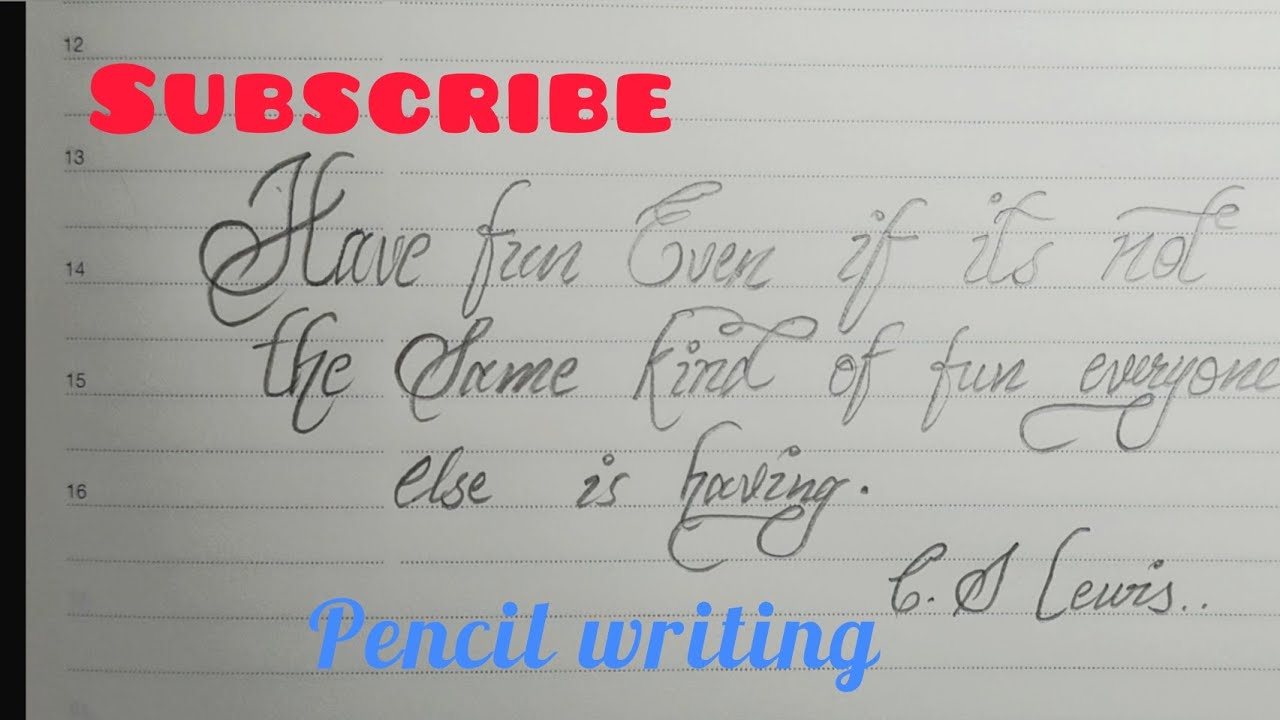 12
SUBSCRIBE
13
Have fun Even if its not
14
the Same kind of fun everyone
15
else is having.
16
C. S Lewis..
Pencil writing